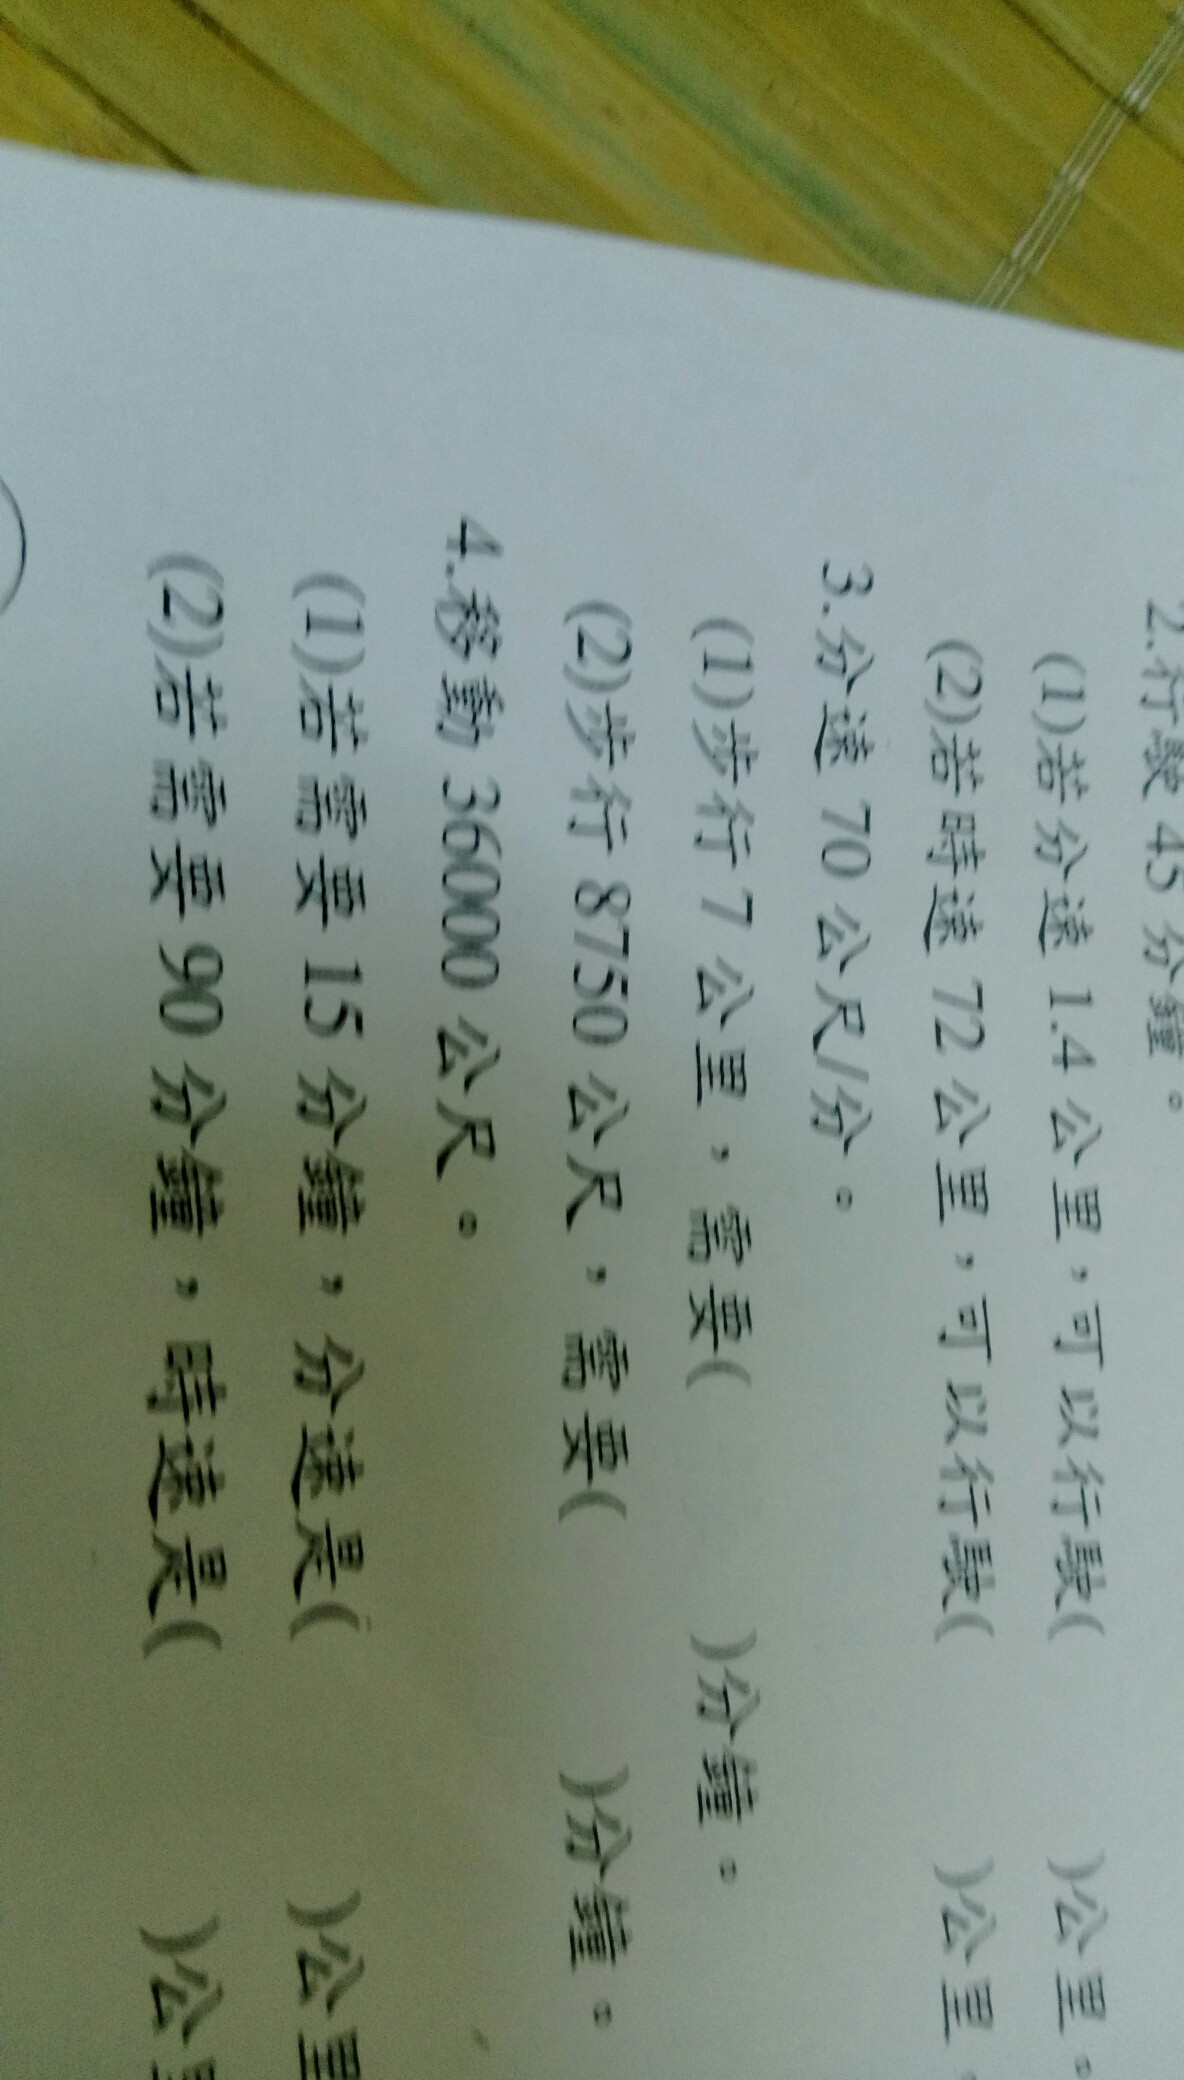 2.行駛 45 分鐘。
(1)若分速 1.4 公里，可以行駛( )公里。
(2)若時速 72 公里，可以行駛( )公里。
3.分速 70 公尺/分。
(1)步行 7 公里，需要( )分鐘。
(2)步行 8750 公尺，需要( )分鐘。
4.移動 36000 公尺。
(1)若需要 15 分鐘，分速是( )公里
(2)若需要 90 分鐘，時速是( )公里